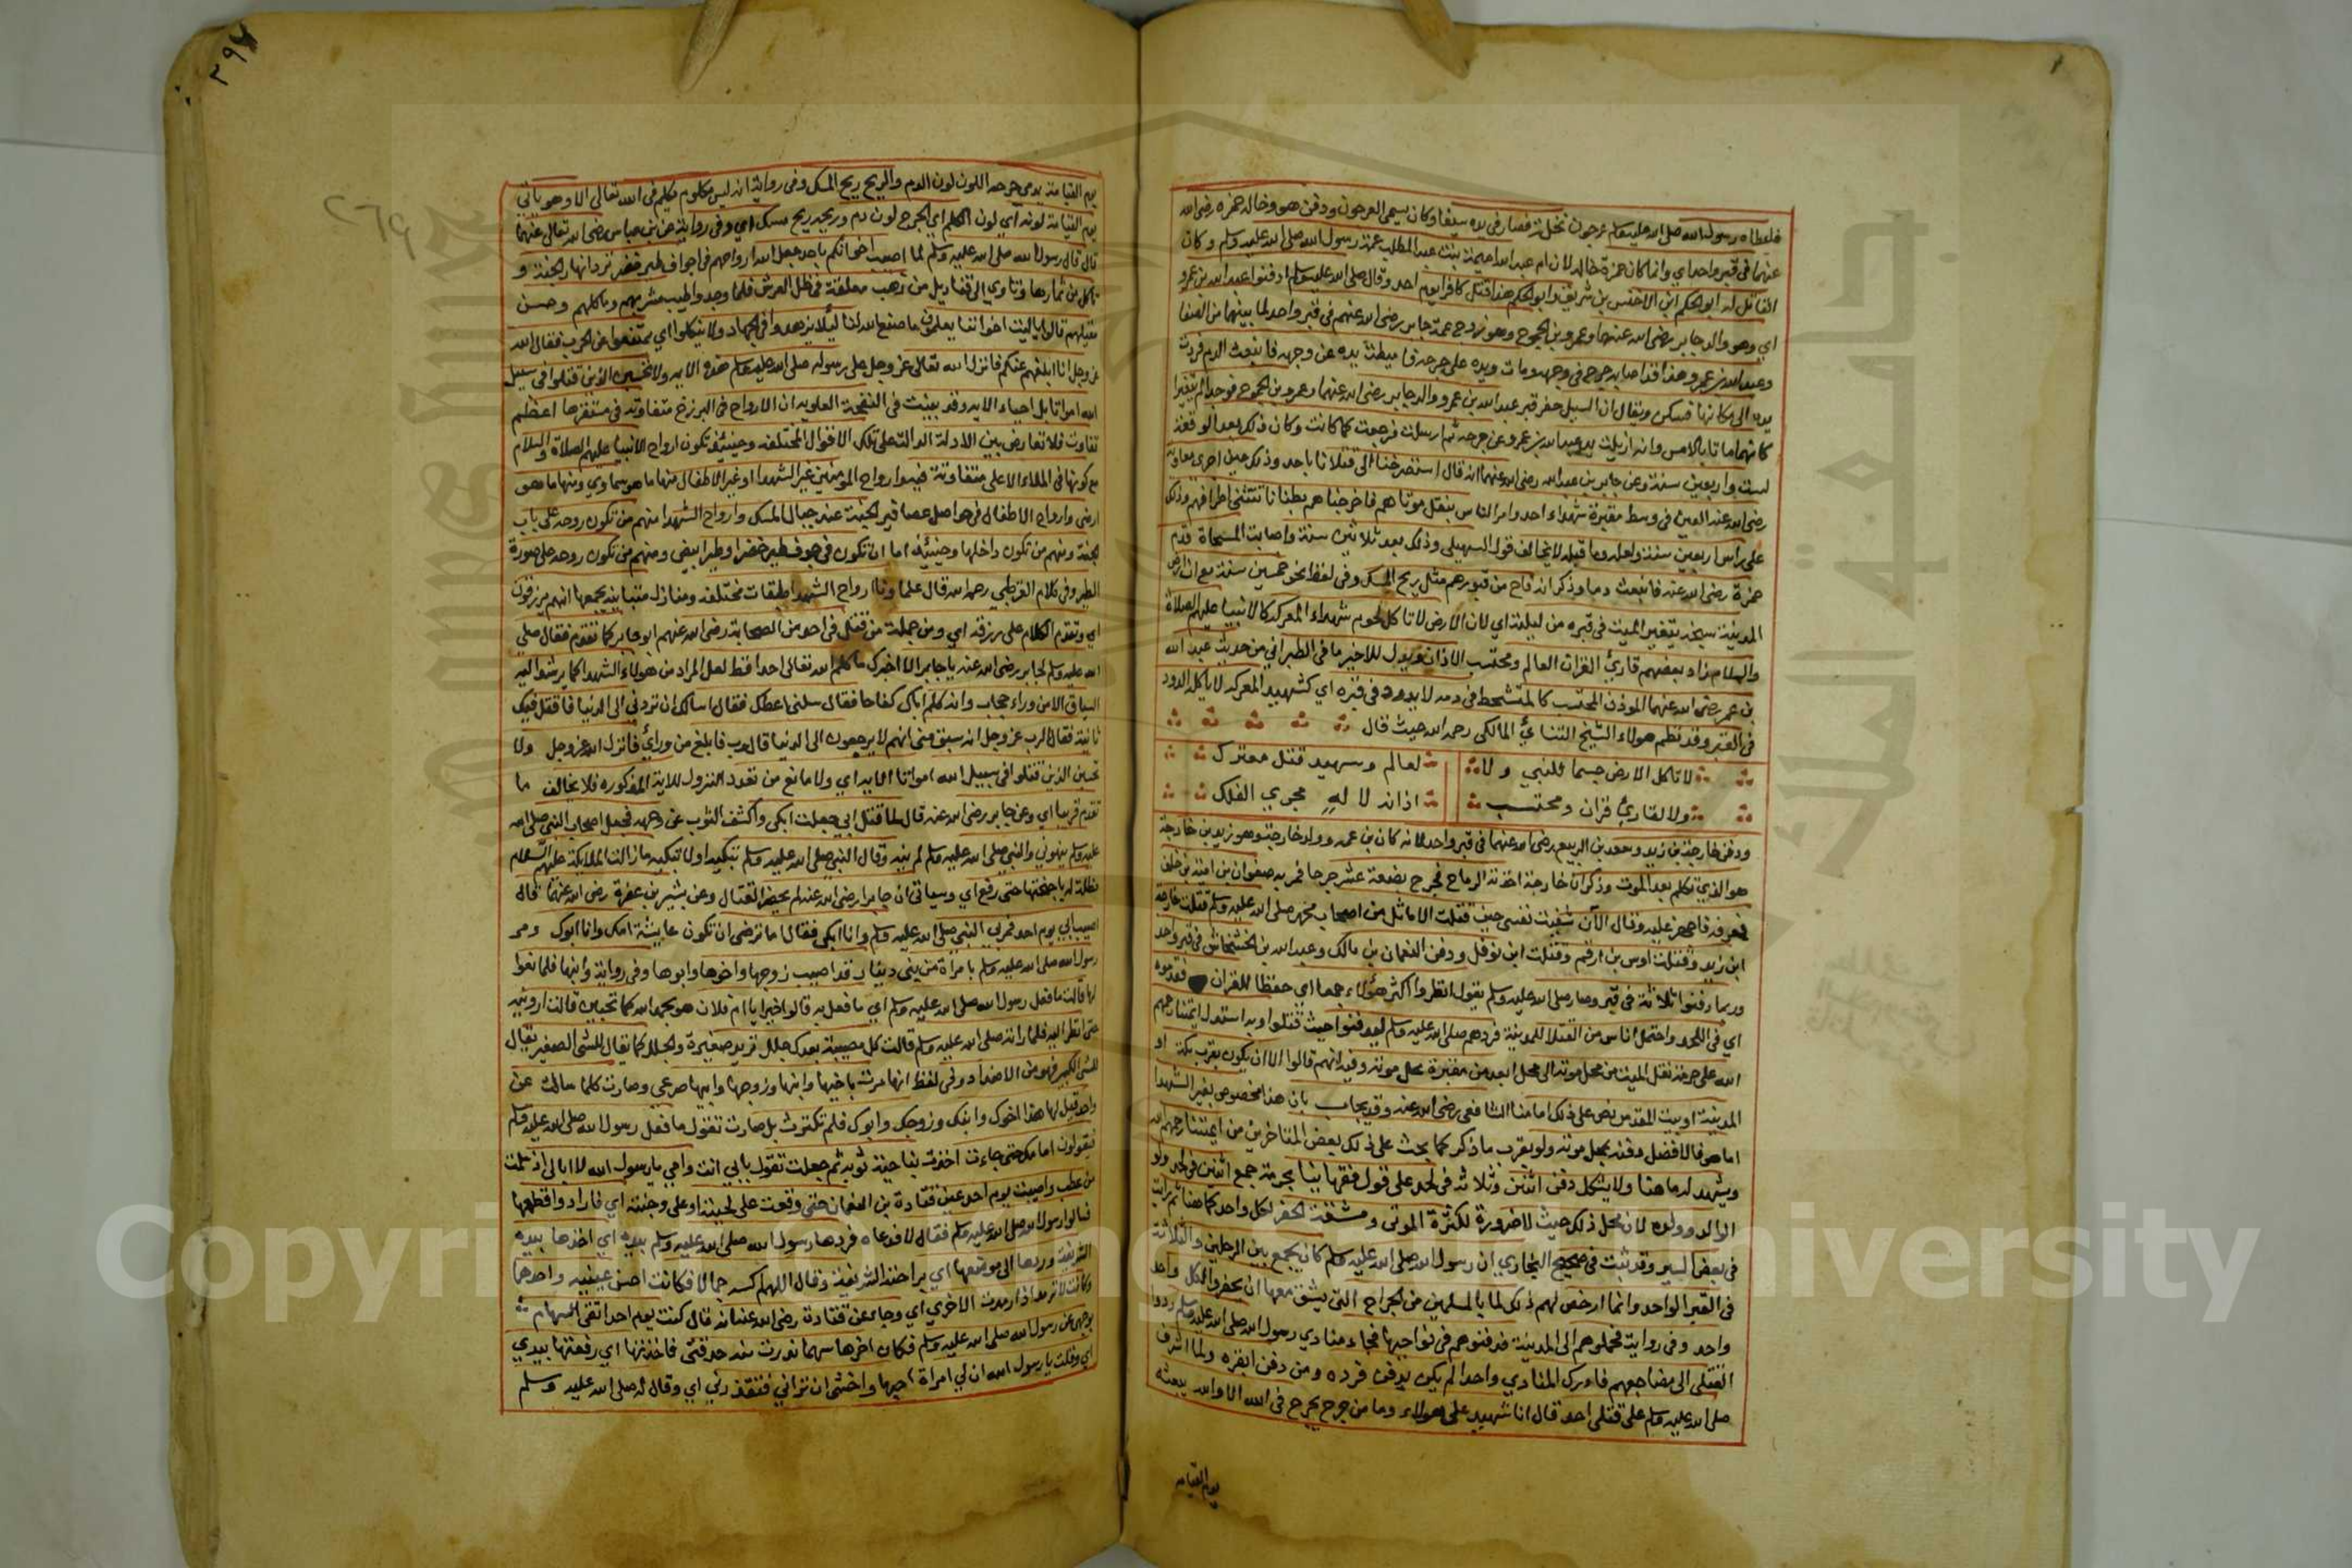 فاعطاه رسول الله صلى الله عليه وسلم عرجون نخلة فصار في يده سيفا وكان يسمى العرجون ودفن هو وخاله حمزه رضي الله
عنهما في قبر واحد اي وانما كان حمزة خاله لان ام عبد الله اميمة بنت عبد المطلب عمة رسول الله صلى الله عليه وسلم وكان
القاتل له ابو الحكم ابن الاخنس بن شريق وابو الحكم هذا قتل كافرا يوم احد وقال صلى الله عليه وسلم ادفنوا عبد الله بن عمرو
اي وهو والد جابر رضي الله عنهما وعمرو بن الجموح وهو زوج عمة جابر رضي الله عنهم في قبر واحد لما بينهما من الصفا
وعبد الله بن عمرو هذا قد اصابه جرح في وجهه ومات ويده على جرحه فاميطت يده عن وجهه فانبعث الدم فردت
يده الى مكانها فسكن ويقال ان السيل حفر قبر عبد الله بن عمرو والد جابر رضي الله عنهما وعمرو بن الجموح فوجدا لم يتغيرا
كانهما ماتا بالامس وانه ازيلت يد عبد الله بن عمرو عن جرحه ثم ارسلت فرجعت كما كانت وكان ذلك بعد الوقعة
لست واربعين سنة وعن جابر بن عبد الله رضي الله عنهما انه قال استصرخنا الى قتلانا باحد وذلك حين اجرى معاوية
رضي الله عنه العين في وسط مقبرة شهداء احد وامر الناس بنقل موتاهم فاخرجناهم رطبا تتثنى اطرافهم وذلك
على راس اربعين سنة ولعله وما قبله لا يخالف قول السهيلي وذلك بعد ثلاثين سنة واصابت المسحاة قدم
حمزة رضي الله عنه فانبعث دما وذكر انه فاح من قبورهم مثل ريح المسك وفي لفظ نحو خمسين سنة مع ان ارض
المدينة سبخة يتغير الميت في قبره من ليلته اي لان الارض لا تاكل لحوم شهداء المعركة كالانبيا عليهم الصلاة
والسلام زاد بعضهم قارئ القران العالم ومحتسب الاذان ويدل للاخير ما في الطبراني من حديث عبد الله
بن عمر رضي الله عنهما الموذن المحتسب كالمتشحط في دمه لا يدود في قبره اي كشهيد المعركة لا ياكله الدود
في القبر وقد نظم هولاء الشيخ التتائي المالكي رحمه الله حيث قال
لا تاكل الارض جسما للنبي ولا لعالم وسهيد قتل معترك
ولا لقارئ قران ومحتسب اذانه لا له مجري الفلك
ودفن خارجة بن زيد وسعد بن الربيع رضي الله عنهما في قبر واحد لانه كان بن عمه وولد خارجة وهو زيد بن خارجة
هو الذي تكلم بعد الموت وذكر ان خارجة اخذته الرماح فجرح بضعة عشر جرحا فمر به صفوان بن امية بن خلف
فعرفه فاجهز عليه وقال الآن شفيت نفسي حيث قتلت الاماثل من اصحاب محمد صلى الله عليه وسلم قتلت خارجة
ابن زيد وقتلت اوس بن ارقم وقتلت ابن نوفل ودفن النعمان بن مالك وعبد الله بن الخشخاش في قبر واحد
وربما دفنوا ثلاثة في قبر وصار صلى الله عليه وسلم يقول انظروا اكثر هؤلاء جمعا اي حفظا للقران فقدموه
اي في اللحد واحتمل اناس من القتلا للمدينة فردهم صلى الله عليه وسلم ليدفنوا حيث قتلوا وبه استدل ايمتنا رحمهم
الله على حرمة نقل الميت من محل موته الى محل ابعد من مقبرة محل موته وفيه انهم قالوا الا ان يكون بقرب مكة او
المدينة او بيت المقدس نص على ذلك امامنا الشافعي رضي الله عنه وقد يجاب بان هذا مخصوص بغير الشهدا
اما هو فالافضل دفنه بمحل موته ولو بقرب ما ذكر كما بحث على ذلك بعض المتاخرين من ايمتنا رحمهم الله
ويشهد له ما هنا ولا يشكل دفن اثنين وثلاثة في لحد على قول فقهائنا بحرمة جمع اثنين في لحد ولو
الوالد وولده لان محل ذلك حيث لا ضرورة لكثرة الموتى ومشقة الحفر لكل واحد كما هنا ثم رايت
في بعض السير وقد ثبت في صحيح البخاري ان رسول الله صلى الله عليه وسلم كان يجمع بين الرجلين والثلاثة
في القبر الواحد وانما ارخص لهم ذلك لما بالمسلمين من الجراح التي يشق معها ان يحفروا لكل واحد
واحد وفي رواية فحملوهم الى المدينة فدفنوهم في نواحيها فجاء منادي رسول الله صلى الله عليه وسلم ردوا
القتلى الى مضاجعهم فادرك المنادي واحدا لم يكن يدفن فرده ومن دفن ابقره ولما اشرف
صلى الله عليه وسلم على قتلى احد قال انا شهيد على هولاء وما من جرح يجرح في الله الا والله يبعثه
يوم القيامة
٢٩٧
٢٦٩
يوم القيامة يدمي جرحه اللون لون الدم والريح ريح المسك وفي رواية انه ليس مكلوم يكلم في الله تعالى الا وهو ياتي
يوم القيامة لونه اي لون الكلم اي الجرح لون دم وريحه ريح مسك اي وفي رواية عن بن عباس رضي الله تعالى عنهما
قال قال رسول الله صلى الله عليه وسلم لما اصيب اخوانكم باحد جعل الله ارواحهم في اجواف طير خضر ترد انهار الجنة و
تاكل من ثمارها وتاوي الى قناديل من ذهب معلقة في ظل العرش فلما وجدوا طيب مشربهم وماكلهم وحسن
مقيلهم قالوا ياليت اخواننا يعلمون ما صنع الله لنا ليلا يزهدوا في الجهاد ولا ينكلوا اي يمتنعوا عن الحرب فقال الله
عز وجل انا ابلغهم عنكم فانزل الله تعالى عز وجل على رسوله صلى الله عليه وسلم هذه الايه ولا تحسبن الذين قتلوا في سبيل
الله امواتا بل احياء الايه وقد بينت في النفحة العلويه ان الارواح في البرزخ متفاوته في مستقرها اعظم
تفاوت فلا تعارض بين الادلة الدالة على تلك الاقوال المختلفه وحينئذ تكون ارواح الانبيا عليهم الصلاة والسلام
مع كونها في الملاء الاعلى متفاوتة فيه وارواح المومنين غير الشهدا وغير الاطفال منها ما هو سماوي ومنها ما هو
ارضي وارواح الاطفال في حواصل عصافير الجنة عند جبال المسك وارواح الشهدا منهم من تكون روحه على باب
الجنة ومنهم من تكون داخلها وحينئذ اما ان تكون في جوف طير خضر او طير ابيض ومنهم من تكون روحه على صورة
الطير وفي كلام القرطبي رحمه الله قال علماونا ارواح الشهدا طبقات مختلفه ومنازل متباينه يجمعها انهم يرزقون
اي وتقدم الكلام على رزقه اي ومن جملة من قتل في احد من الصحابة رضي الله عنهم ابو جابر كما تقدم فقال صلى
الله عليه وسلم لجابر رضي الله عنه يا جابر الا اخبرك ما كلم الله تعالى احدا قط لعل المراد من هولاء الشهدا كما يرشد اليه
السياق الا من وراء حجاب وانه كلم اباك كفاحا فقال سلني اعطك فقال اسالك ان ترد بي الى الدنيا فاقتل فيك
ثانية فقال الرب عز وجل انه سبق مني انهم لا يرجعون الى الدنيا قال يرب فابلغ من وراءي فانزل الله عز وجل ولا
تحسبن الذين قتلوا في سبيل الله امواتا الايه اي ولا مانع من تعدد النزول للاية المذكوره فلا يخالف ما
تقدم قريبا اي وعن جابر رضي الله عنه قال لما قتل ابي جعلت ابكي واكشف الثوب عن وجهه فجعل اصحاب النبي صلى الله
عليه وسلم ينهوني والنبي صلى الله عليه وسلم لم ينه وقال النبي صلى الله عليه وسلم تبكيه او لا تبكيه ما زالت الملائكة عليهم السلام
تظله باجنحتها حتى رفع اي وسياتي ان جابرا رضي الله عنه لم يحضر القتال وعن بشير بن عفرة رضي الله عنهما قال
اصيب ابي يوم احد فمر بي النبي صلى الله عليه وسلم وانا ابكي فقال اما ترضى ان تكون عايشة امك وانا ابوك ومر
رسول الله صلى الله عليه وسلم بامراة من بني دينار قد اصيب زوجها واخوها وابوها وفي رواية وابنها فلما نعوا
لها قالت ما فعل رسول الله صلى الله عليه وسلم اي ما فعل به قالوا خيرا يا ام فلان هو بحمد الله كما تحبين قالت ارونيه
حتى انظر اليه فلما راته صلى الله عليه وسلم قالت كل مصيبة بعدك جلل تريد صغيرة والجلل كما يقال للشئ الصغير يقال
للشئ الكبير فهو من الاضداد وفي لفظ انها مرت باخيها وابنها وزوجها وابيها صرعى وصارت كلما سالت عن
واحد قيل لها هذا اخوك وابنك وزوجك وابوك فلم تكترث بل صارت تقول ما فعل رسول الله صلى الله عليه وسلم
فيقولون امامك حتى جاءت اخذت بناحية ثوبه ثم جعلت تقول بابي انت وامي يا رسول الله لا ابالي اذ سلمت
من عطب واصيبت يوم احد عين قتادة بن النعمان حتى وقعت على لحيته او على وجنته اي فاراد واقطعها
فسالوا رسول الله صلى الله عليه وسلم فقال لا فدعاه فردها رسول الله صلى الله عليه وسلم بيده اي اخذها بيده
الشريفة وردها الى موضعها اي براحته الشريفة وقال اللهم اكسه جمالا فكانت احسن عينيه واحدهما
وكانت لا ترمد اذا رمدت الاخرى اي وجا عن قتادة رضي الله عنه انه قال كنت يوم احد اتقي السهام
بوجهي عن رسول الله صلى الله عليه وسلم فكان اخرها سهما ندرت منه حدقتي فاخذتها اي رفعتها بيدي
اي وقلت يا رسول الله ان لي امراة احبها واخشى ان تراني فتقذرني اي وقال له صلى الله عليه وسلم
Copyright © King Saud University